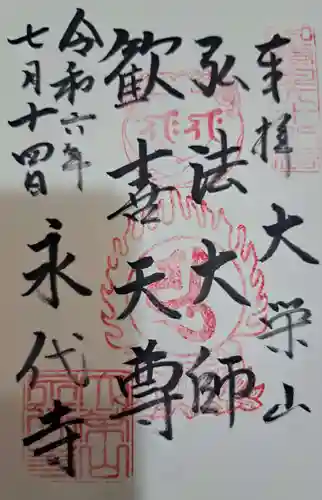 奉拝
大栄山
弘法大師
歓喜天尊
永代寺
令和六年
七月十四日